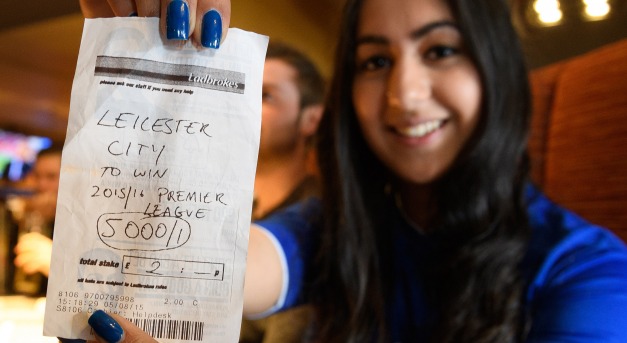 Ladbrokes
please ask our staff if you need any help
LEICESTER
CITY
TO WIN
2015/16 PREMIER
LEAGUE
5000/1
total stake £ 2 : — p
all bets are subject to Ladbrokes rules
8106 9700795998 2.00 C
15:18:29 05/08/15
S8106 Helpdesk